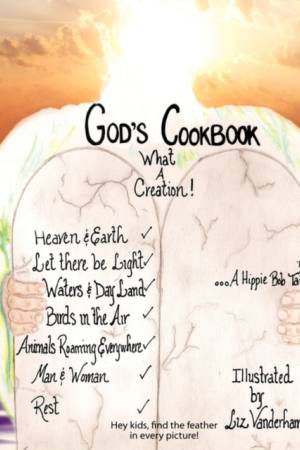 GOD'S COOKBOOK
What
A
Creation!
Heaven & Earth ✓
Let there be Light ✓
Waters & Day Land ✓
Birds in the Air ✓
Animals Roaming Everywhere ✓
Man & Woman ✓
Rest ✓
...A Hippie Bob
Illustrated
by
Liz
Hey kids, find the feather
in every picture!